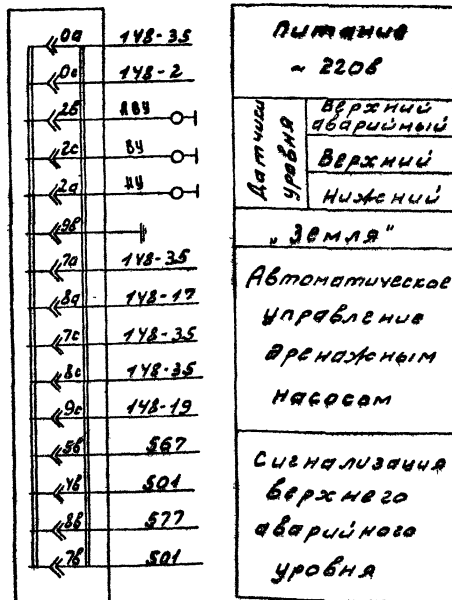 0а 148-35
0с 148-2
2в АВУ
2с ВУ
2а НУ
9в
7а 148-35
8а 148-17
7с 148-35
8с 148-35
9с 148-19
5в 567
4в 501
8в 577
7в 501
Питание
~ 220в
Датчики
уровня
Верхний
аварийный
Верхний
Нижений
„Земля"
Автоматическое
управление
дренажным
насосом
Сигнализация
верхнего
аварийного
уровня